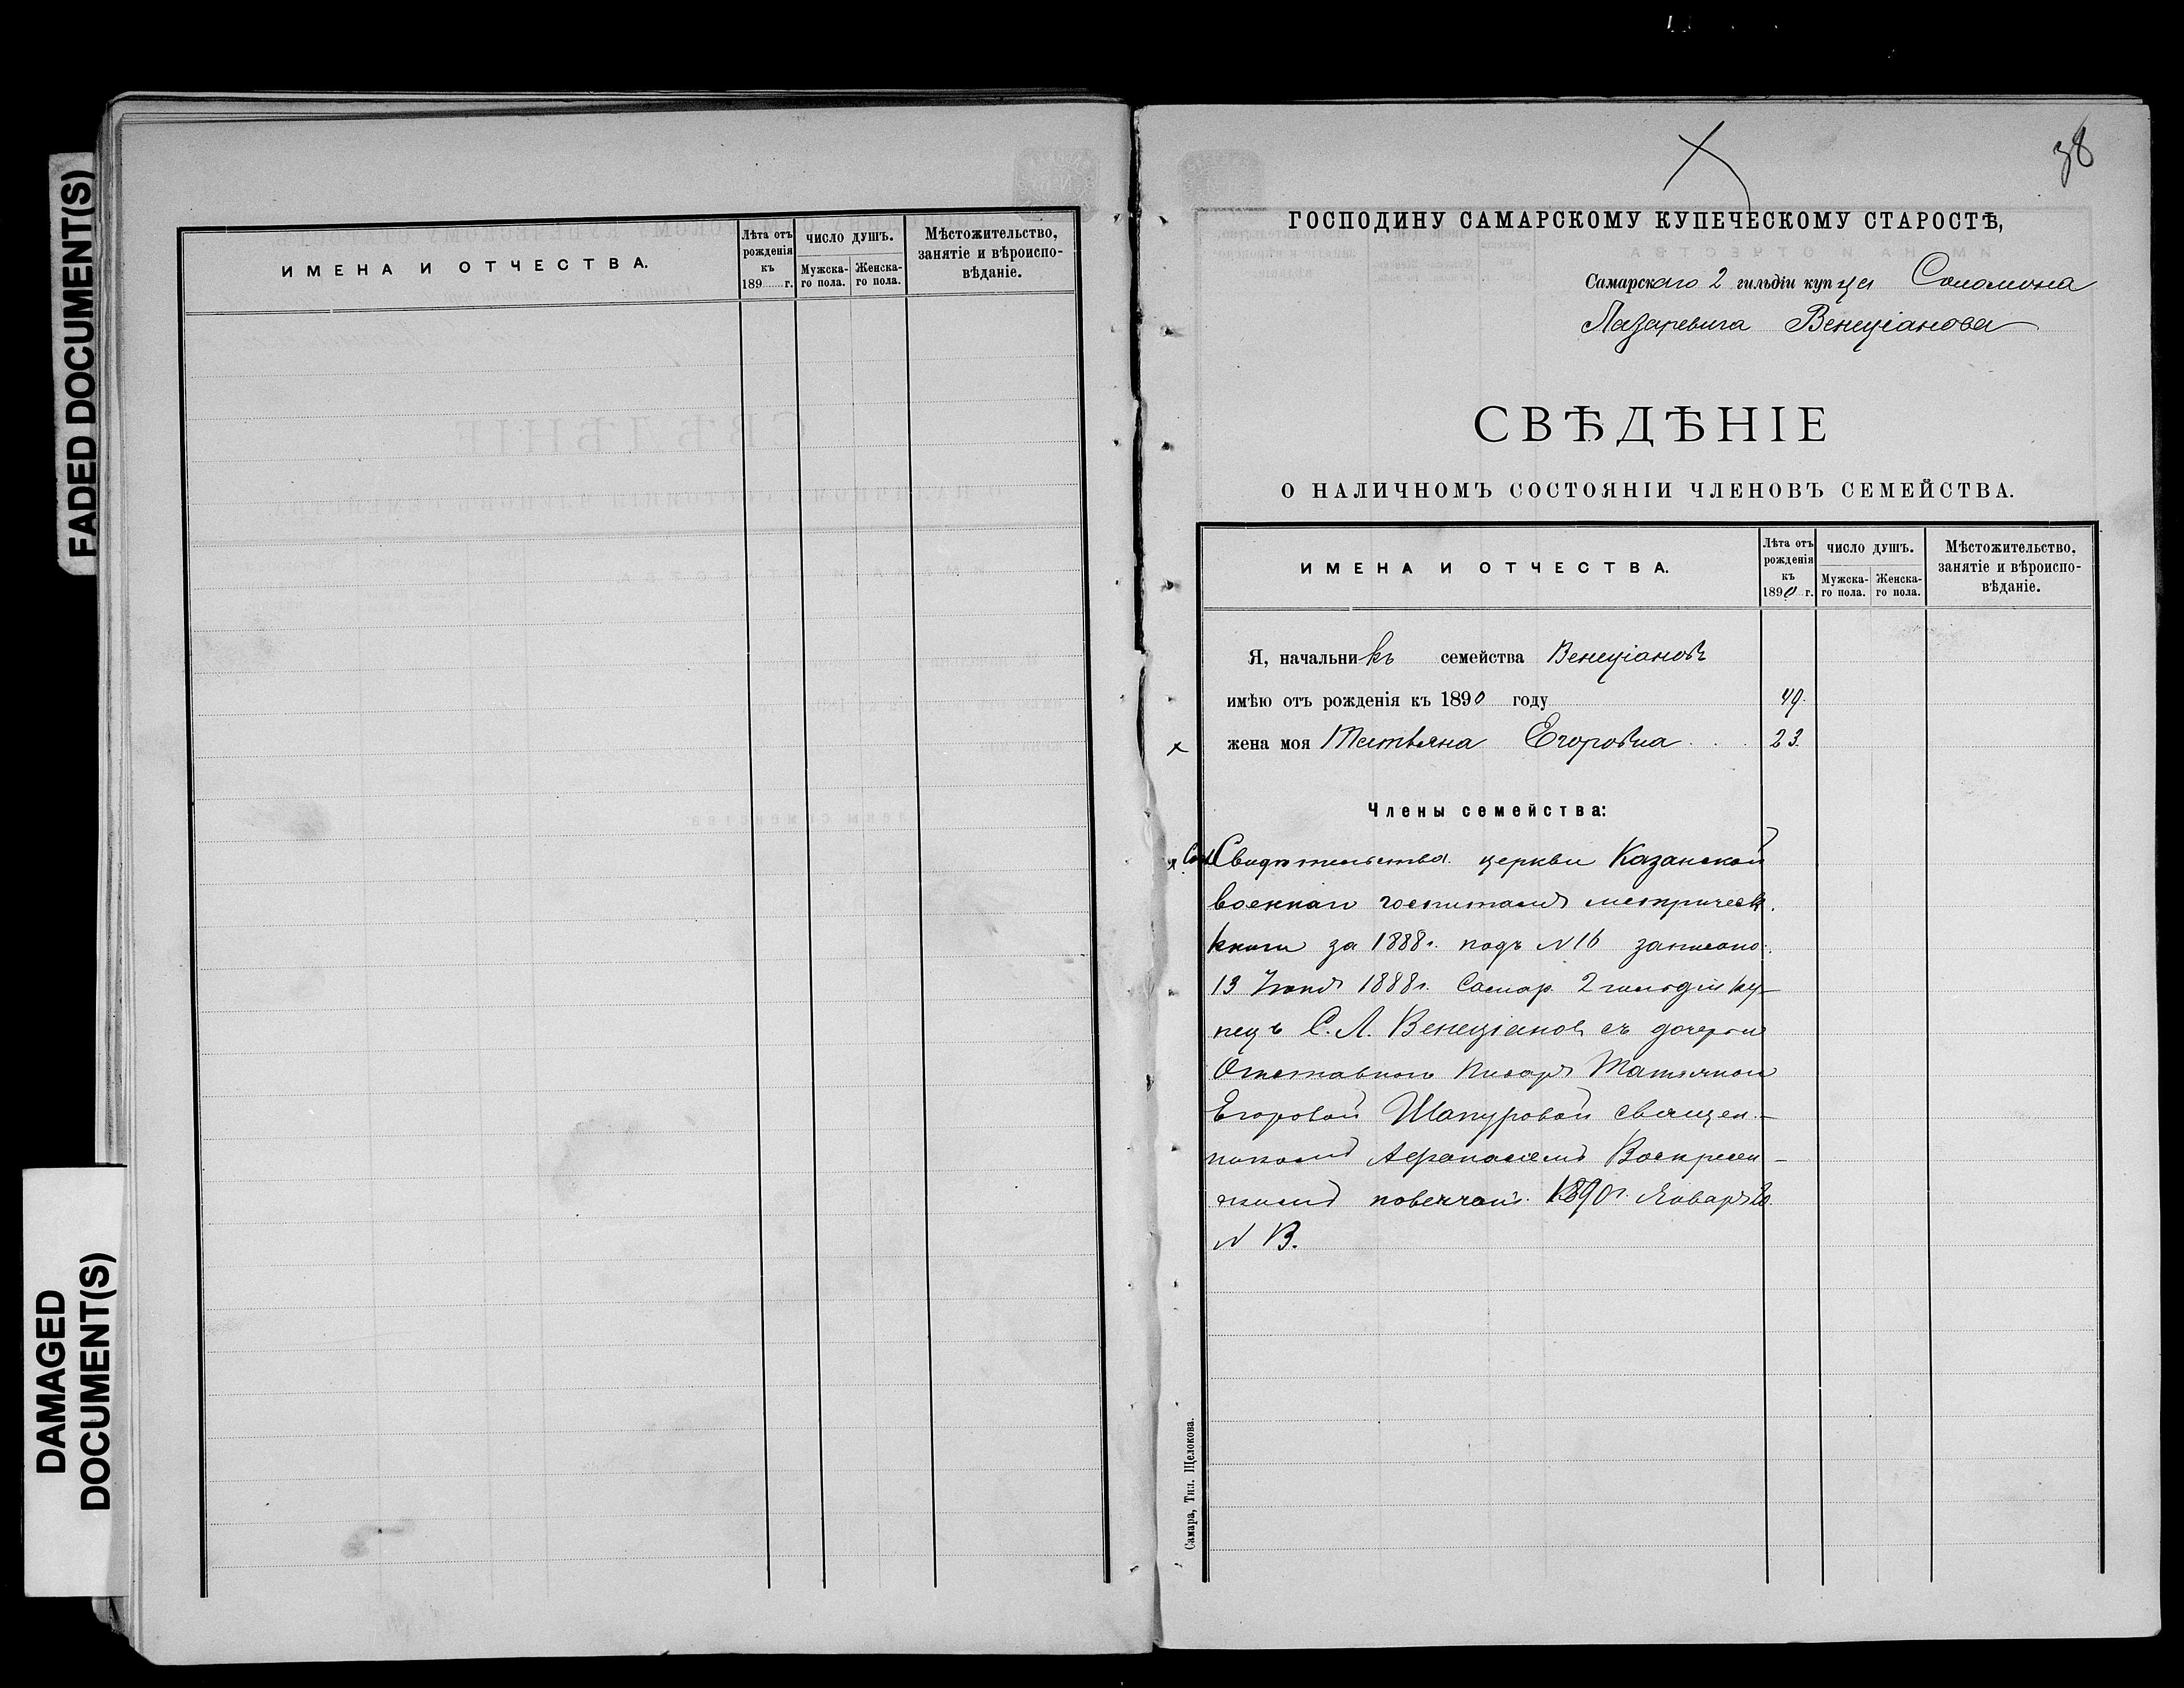 FADED DOCUMENT(S)
DAMAGED
DOCUMENT(S)
ИМЕНА И ОТЧЕСТВА.
Лѣта отъ
рожденія
къ
189 г.
число душъ.
Мужска-
го пола.
Женска-
го пола.
Мѣстожительство,
занятіе и вѣроиспо-
вѣданіе.
38
ГОСПОДИНУ САМАРСКОМУ КУПЕЧЕСКОМУ СТАРОСТѢ,
Самарскаго 2 гильдіи купца Соломона
Лазаревича Венеціанова
СВѢДѢНІЕ
О НАЛИЧНОМЪ СОСТОЯНІИ ЧЛЕНОВЪ СЕМЕЙСТВА.
ИМЕНА И ОТЧЕСТВА.
Лѣта отъ
рожденія
къ
1890 г.
число душъ.
Мужска-
го пола.
Женска-
го пола.
Мѣстожительство,
занятіе и вѣроиспо-
вѣданіе.
Я, начальникъ семейства Венеціановъ
имѣю отъ рожденія къ 1890 году 49.
жена моя Татьяна Егоровна 23.
Члены семейства:
Свидѣтельства церкви Казанской
военнаго госпиталя метрическ.
книги за 1888 г. подъ N 16 записано:
13 Іюня 1888 г. Самар. 2 гильдіи ку-
пецъ С. Л. Венеціановъ съ дочерью
Отставного Писаря Татьяной
Егоровой Шапуровой священ-
никомъ Афанасіемъ Воскресен-
скимъ повенчаны. 1890 г. Января
N 13.
Самара, Тип. Щелокова.